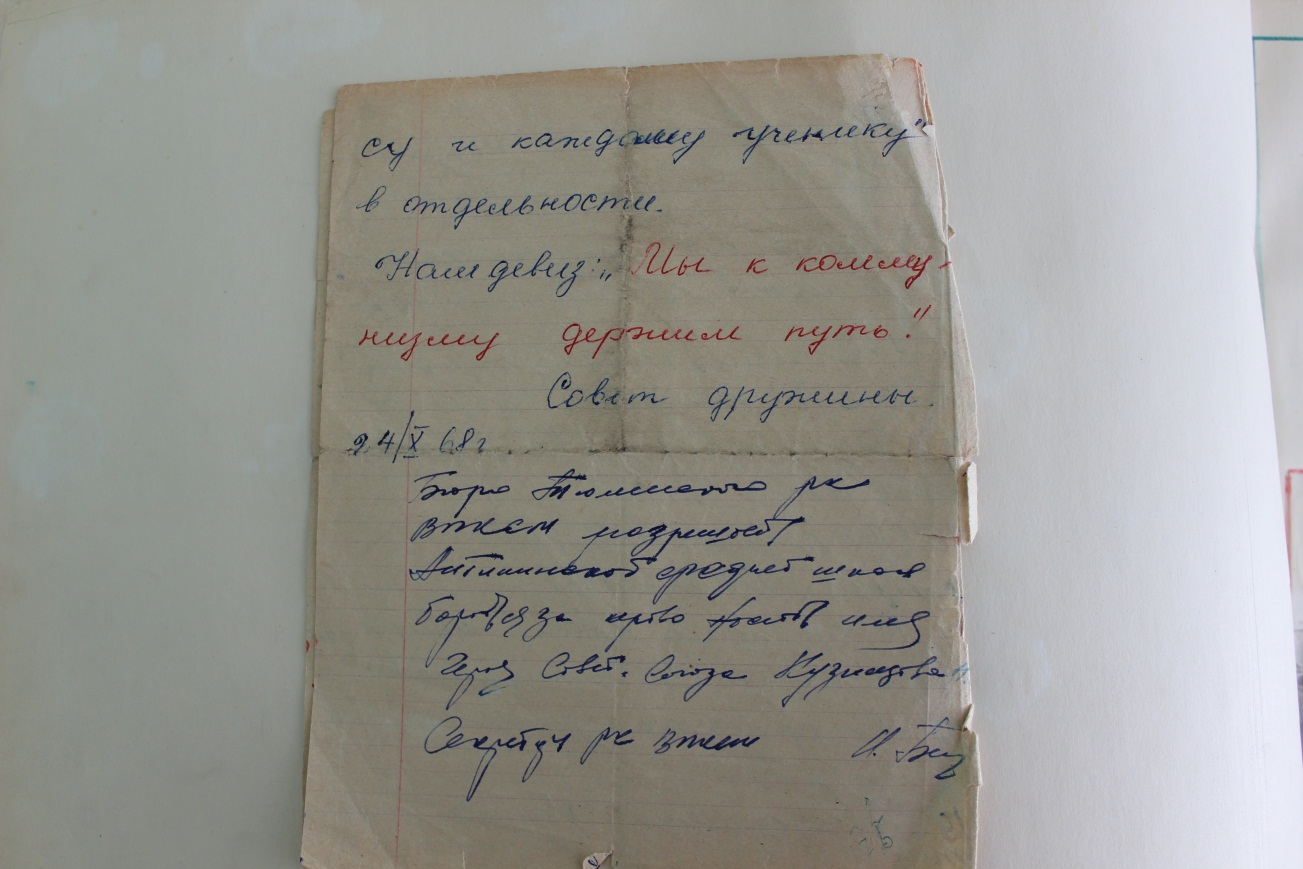 су и каждому ученику"
в отдельности.
Наш девиз: „Мы к комму-
низму держим путь."
Совет дружины.
24/X 68г
Бюро Тюменского рк
ВЛКСМ разрешает
Антипинской средней школе
бороться за право носить имя
Героя Совет. Союза Кузнецова
Секретарь рк ВЛКСМ